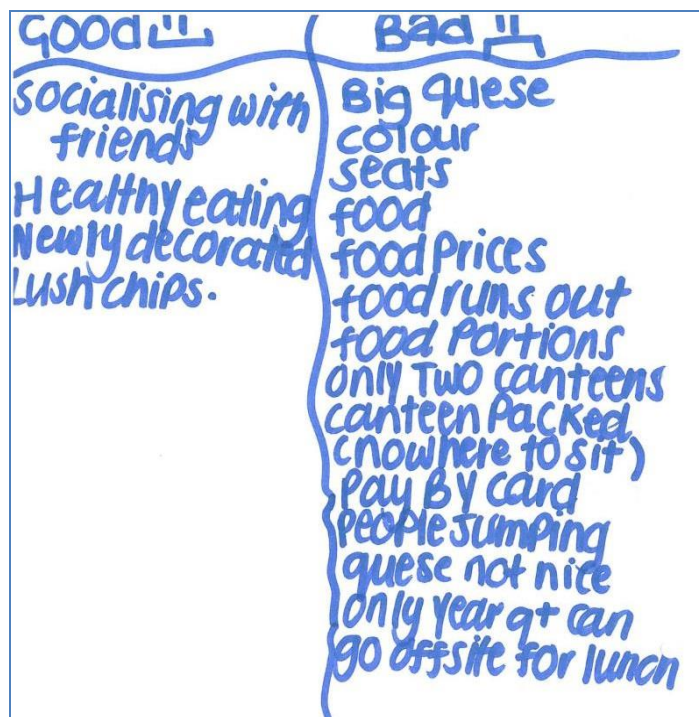 Good
Socialising with
friends
Healthy eating
Newly decorated
Lush chips.
Bad
Big quese
colour
seats
food
food Prices
food runs out
food Portions
only Two canteens
canteen Packed
(nowhere to sit)
Pay By card
People Jumping
quese not nice
only year 9+ can
go offsite for lunch